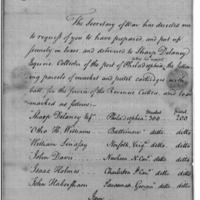 The Secretary of War has directed me
to request of you to have prepared, and put up
securely in boxes and delivered to Sharp Delaney
Esquire Collector of the port of Philadelphia, the follow
ing parcels of musket and pistol cartridges with
ball, for the service of the Revenue Cutters, and
marked as follows:
Musket Pistol
Sharp Delaney Esqr Philadelphia 300 200
Otho H. Williams Baltimore ditto ditto
William Lindsay Norfolk Virga ditto ditto
John Davis Newbern N. Ca. ditto ditto
Isaac Holmes Charleston ditto ditto
John Habersham Savannah Georgia ditto ditto
I am